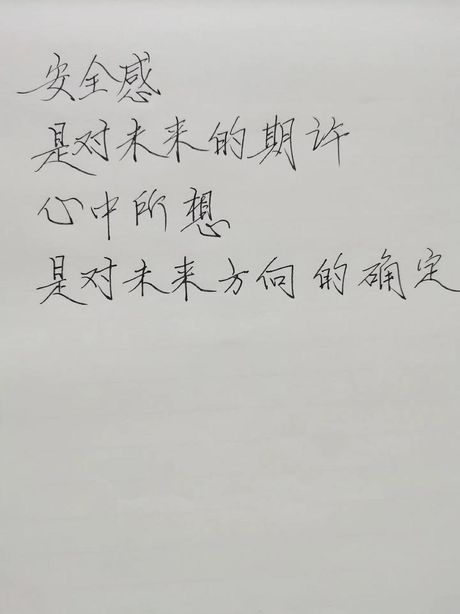 安全感
是对未来的期许
心中所想
是对未来方向的确定